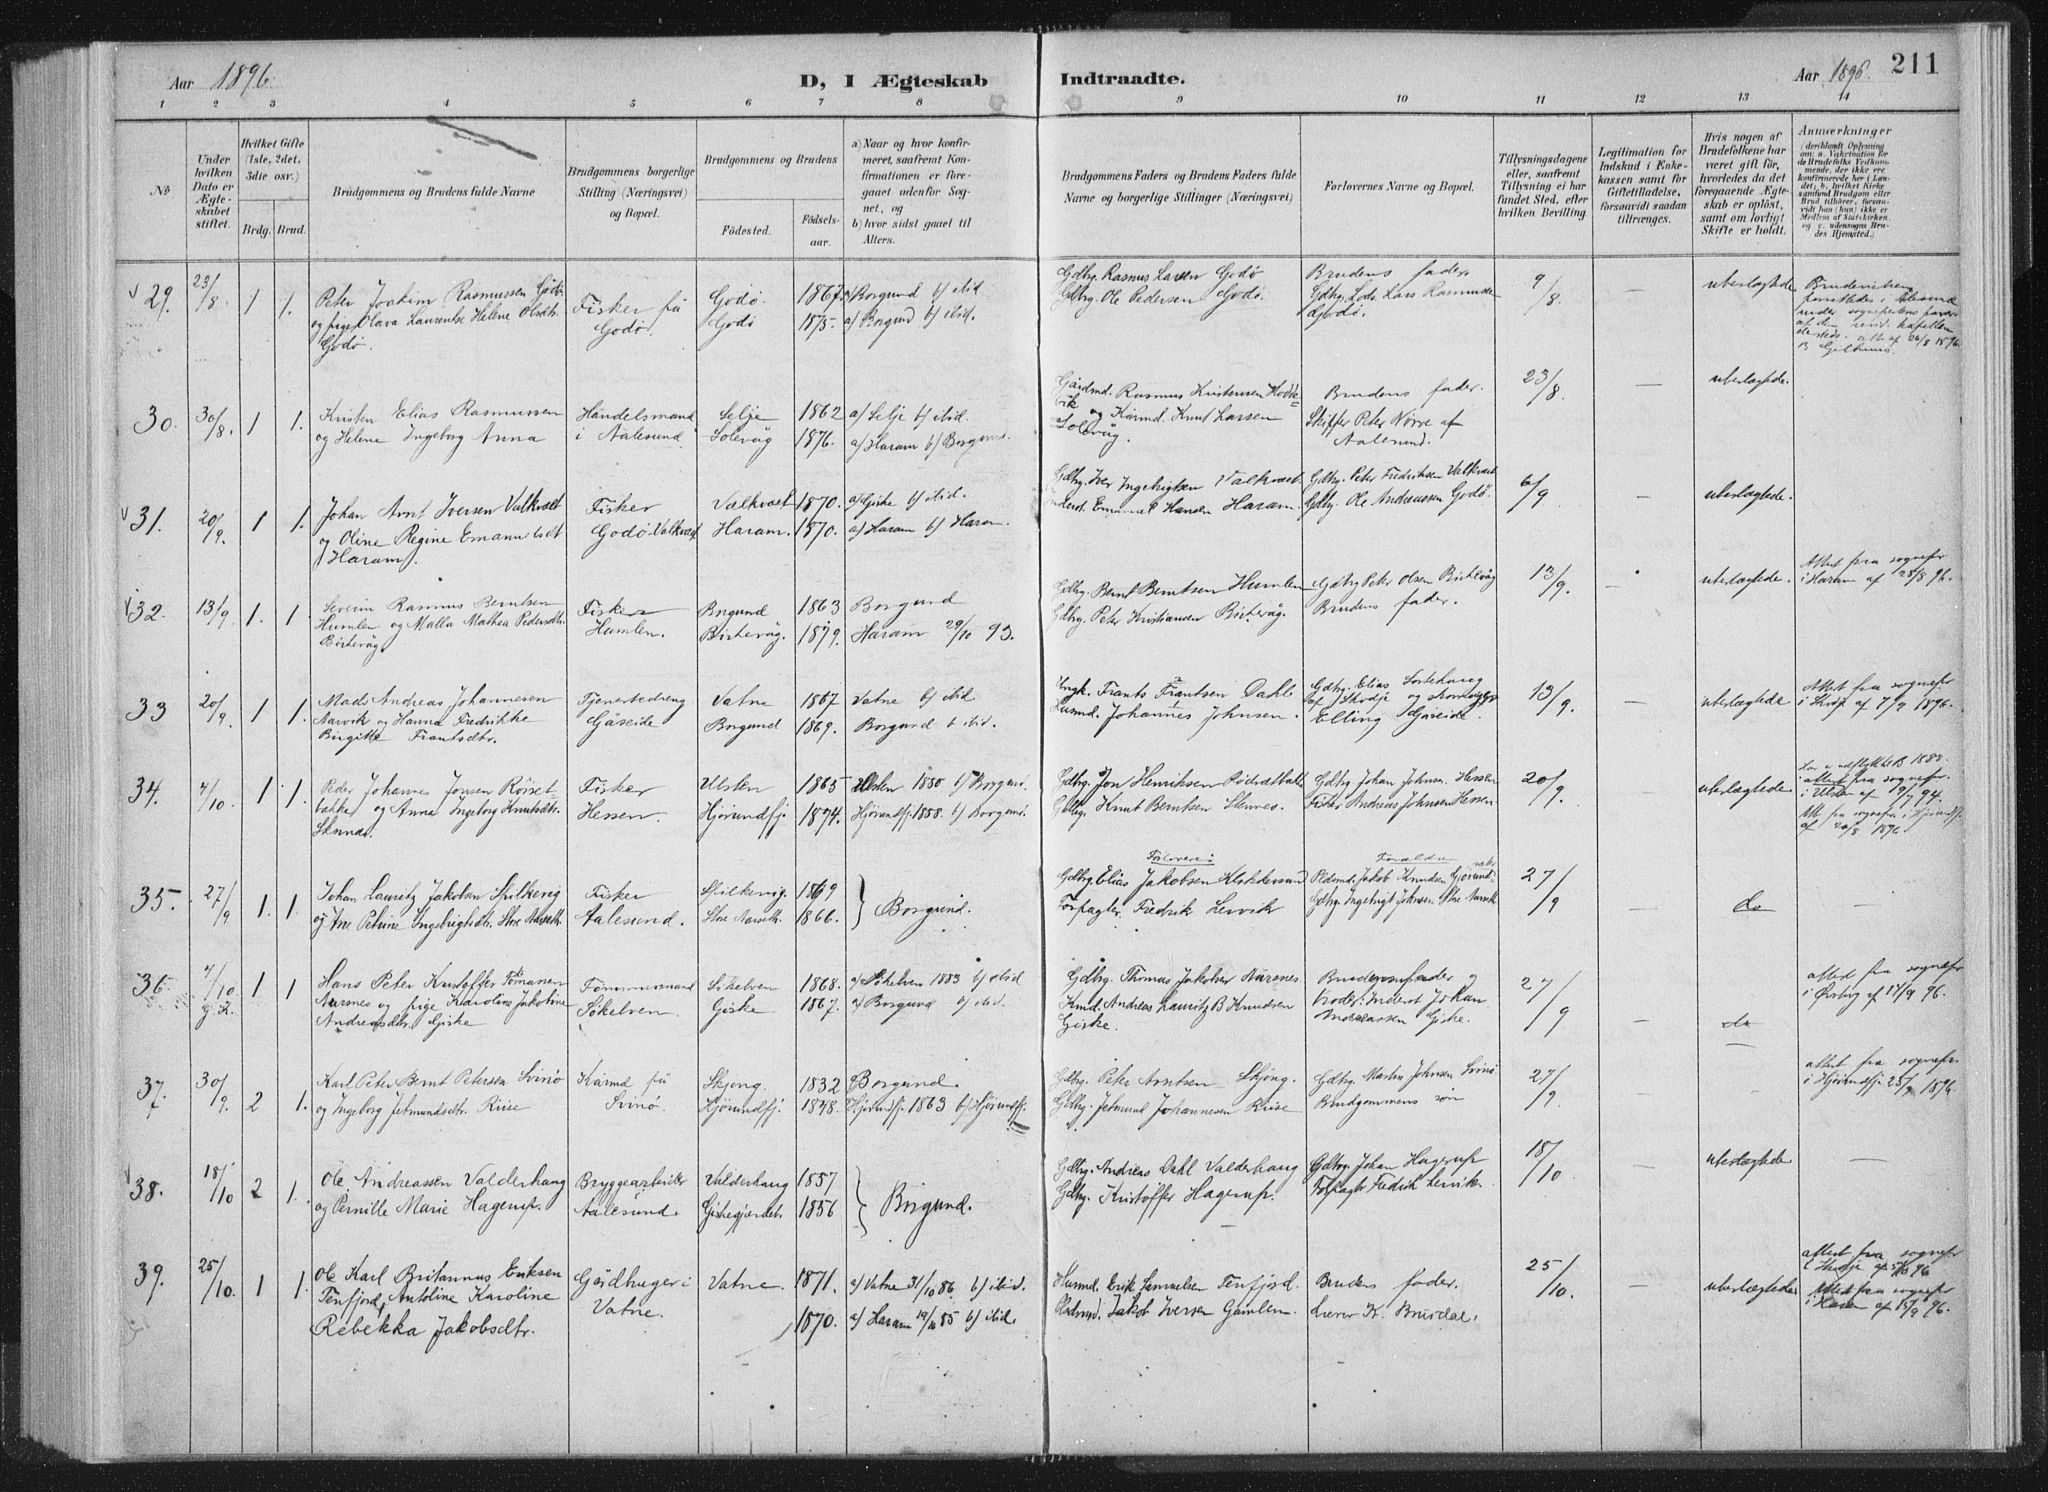 Aar 1896.
D, I Ægteskab Indtraadte.
Aar 1896. 211
1 2 3 4 5 6 7 8 9 10 11 12 13 14
No
Under hvilken Dato er Ægteskabet stiftet.
Hvilket Gifte (1ste, 2det, 3die osv.)
Brdg. Brud.
Brudgommens og Brudens fulde Navne
Brudgommens borgerlige Stilling (Næringsvei) og Bopæl.
Brudgommens og Brudens
Födested. Födselsaar.
a) Naar og hvor konfirmeret, saafremt Konfirmationen er foregaaet udenfor Sognet, og
b) hvor sidst gaaet til Alters.
Brudgommens Faders og Brudens Faders fulde Navne og borgerlige Stillinger (Næringsvei)
Forlovernes Navne og Bopæl.
Tillysningsdagene eller, saafremt Tillysning ei har fundet Sted, efter hvilken Bevilling.
Legitimation for Indskud i Enkekassen samt for Giftetilladelse, forsaavidt saadan tiltrænges.
Hvis nogen af Brudefolkene har været gift för, hvorledes da det foregaaende Ægteskab er oplöst, samt om lovligt Skifte er holdt.
Anmærkninger (deriblandt Oplysning om: a. Vakcination for de Brudefolks Vedkommende, der ikke ere konfirmerede her i Landet; b. hvilket Kirkesamfund Brudgom eller Brud tilhörer, forsaavidt han (hun) ikke er Medlem af Statskirken, og c. udensogns Brudes Hjemsted.)
29. 23/8. 1 1. Peter Joachim Rasmussen Godø
og pige Olava Laurentse Helene Olsdtr.
Godø.
Fisker på Godø.
Godø. 1867. a) Borgund b) ibid
Godø 1875. a) Borgund b) ibid.
Gdbg. Rasmus Larsen Godø
Gdbg. Ole Pedersen Godø.
Brudens fader
Gdbg. Lods. Lars Rasmussen
Godø.
9/8. ubeslægtede
30. 30/8. 1 1. Kristen Elias Rasmussen
og Helene Ingeborg Anna
Handelsmand i Aalesund.
Selje 1862 a) Selje b) ibid.
Solevåg 1876. a) Haram b) Borgund.
Gårdmd. Rasmus Kristensen
og Kårmd. Knut Larsen
Solevåg.
Brudens fader.
Skipper Peter Nörve af
Aalesund.
23/8. — ubeslægtede.
31. 20/9. 1 1. Johan Arnt Iversen Valkvæt
og Oline Regine Emanuelsdt
Haram.
Fisker
Godø-Valkvæt
Valkvæt 1870. a) Giske b) ibid.
Haram. 1870. a) Haram b) Haram.
Gdbg. Iver Ingebrigtsen Valkvæt
Inderst. Emanuel Hansen Haram.
Gdbg. Peter Fredriksen Valkvæt
Gdbg. Ole Andreassen Godø.
6/9 — ubeslægtede.
32. 13/9. 1. 1. Severin Rasmus Berntsen
Humlen og Malla Mathea Pedersdtr.
Bistevåg
Fisker
Humlen.
Borgund 1863 Borgund
Bistevåg. 1879. Haram 29/10 93.
Gdbg. Bernt Berntsen Humlen
Gdbg. Peter Kristiansen Bistevåg.
Gdbg Peter Olsen Bistevåg
Brudens fader.
13/9. — ubeslægtede.
Attest fra sognepr
i Haram af 28/8 96.
33 20/9. 1 1. Mads Andreas Johannesen
Aarvik og Hanna Fredrikke
Birgitte Frantsdtr.
Tjenestedreng
Gåseide
Vatne 1867 Vatne b) ibid
Borgund 1869. Borgund b ibid.
Ungk. Frants Frantsen Dahl
Husmd. Johannes Johnsen.
Gdbg. Elias
af Skodje og
Elling Gåseide.
13/9. — ubeslægtede
Attest fra sognepr.
i Skodje af 7/9 1896.
34. 4/10. 1. 1. Peder Johannes Jonsen Rörset
bakke og Anna Ingeborg Knutsdtr.
Skinnes.
Fisker
Hessen.
Ulsten 1865 Ulsten 1880 b) Borgund.
Hjörundfj. 1874. Hjörundfj. 1888. b) Borgund.
Gdbg. Jon Henriksen
Gdbg. Knut Berntsen
Gdbg. Johan Johnsen Hessen
Fisker Andreas Johnsen Hessen.
20/9. — ubeslægtede
attest fra sognepr.
i Ulsten af 19/7 94.
Att. fra sognepr. i Hjörundfj.
af 20/8 1896.
35. 27/9 1. 1. Johan Lauritz Jakobsen Spilkevig
og Ane Petrine Ingebrigtsdtr. Store Aarseth
Fisker
Aalesund.
Spilkevig. 1869
Store Aarseth. 1866.
Borgund.
Forlovere:
Gdbg. Elias Jakobsen
Forpagter Fredrik Lervik
Forældre
Jakob Knudsen
Gdbg. Ingebrigt Johnsen Store Aarseth
27/9 — do —
36. 4/10 1 1 Hans Peter Kristoffer Tomasen
Aursnes og pige Karoline Jakobine
Andreasdtr. Giske
Tömmermand
Sökelven.
Sökelven 1868. a) Sökelven 1883 b) ibid
Giske 1867. a) Borgund b) ibid.
Gdbg. Thomas Jakobsen Aursnes
Kmd. Andreas Lauritz B Knudsen
Giske.
Brudens fader og
broder: Inderst Johan
Andreassen Giske.
27/9 — do —
attest fra sognepr
i Örskog af 14/9 96.
37. 30/9. 2 1. Karl Peter Bernt Petersen Svinö
og Ingeborg Jetmundsdtr. Riise
Kårmd på
Svinö.
Skjong. 1832 Borgund.
Hjörundfj. 1848. Hjörundfj. 1863 b) Hjörundfj.
Gdbg. Peter Arntsen Skjong.
Gdbg. Jetmund Johannesen Riise
Gdbg. Martin Johnsen Svinö
Brudgommens sön
27/9
attest fra sognepr.
i Hjörundfj. 25/9 1896
38. 18/10 2 1. Ole Andreassen Valderhaug
og Pernille Marie Hagerup.
Bryggearbeider
Aalesund.
Valderhaug 1857
Giskegjerdet. 1856
Borgund.
Gdbg. Andreas Dahl Valderhaug
Gdbg. Kristoffer Hagerup.
Gdbg. Johan Hagerup
Forpagter Fredrik Lervik.
18/10 — ubeslægtede —
39. 25/10. 1 1. Ole Karl Britannus Eriksen
Tenfjord, Antoline Karoline
Rebekka Jakobsdtr.
Gårdbruger i
Vatne.
Vatne. 1871. a) Vatne 31/10 86 b) ibid.
1870. a) Haram 19/10 85 b) ibid.
Husmd. Erik Samuelsen Tenfjord.
Jakob Iversen Gamlem.
Brudens fader.
Lærer K. Brusdal.
25/10. — ubeslægtede
attest fra sognepr
i Skodje af 5/10 96
Attest fra sognepr
i Haram af 15/9 96.